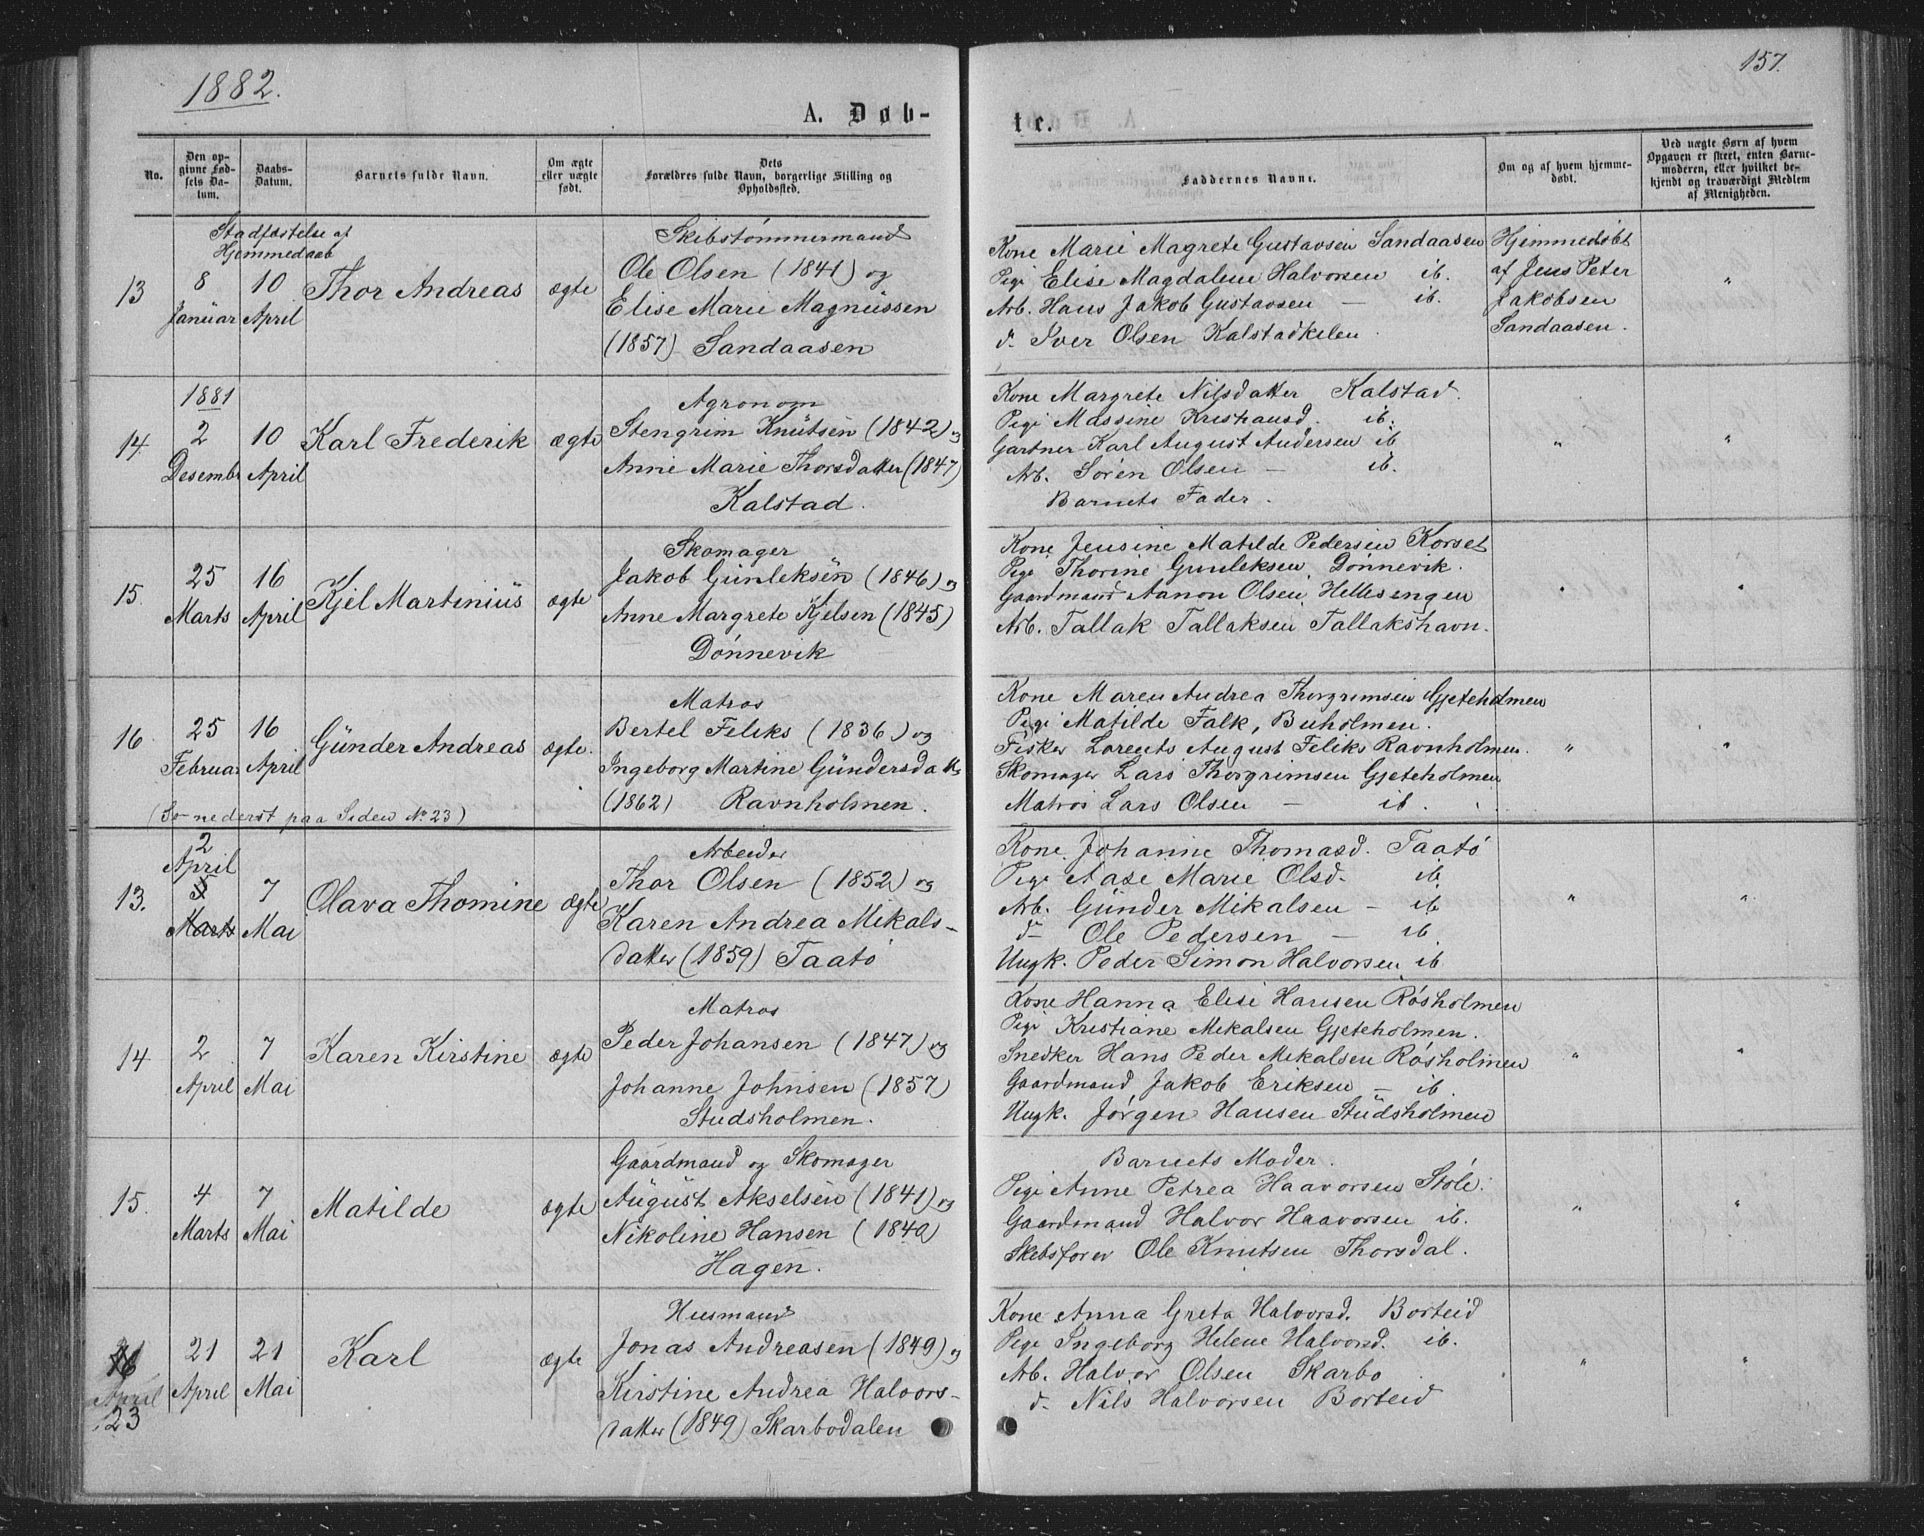 1882.
157.
A. Døb-
te.
No.
Den opgivne Fødsels Datum.
Daabs-Datum.
Barnets fulde Navn.
Om ægte eller uægte født.
Dets Forældres fulde Navn, borgerlige Stilling og Opholdssted.
Faddernes Navne.
Om og af hvem hjemmedøbt.
Ved uægte Børn af hvem Opgaven er skeet, enten Barnemoderen, eller hvilket bekjendt og troværdigt Medlem af Menigheden.
Stadfæstelse af
Hjemmedaab
13
8 Januar
10 April
Thor Andreas
ægte
Skibstømmermand
Ole Olsen (1841) og
Elise Marie Magnussen
(1857) Sandaasen
Kone Marie Magrete Gustavsen Sandaasen
Pigi Elise Magdalene Halvorsen ib.
Arb. Hans Jakob Gustavsen — ib.
d. Iver Olsen Kalstadkilen.
Hjemmedøbt
af Jens Peter
Jakobsen
Sandaasen.
"
14.
1881
2 Desembr
10 April
Karl Frederik
ægte
Agronom
Stengrim Knutsen (1842) og
Anne Marie Thorsdatter (1847)
Kalstad.
Kone Margrete Nilsdatter Kalstad.
Pigi Massine Kristiansd. ib.
Gartner Karl August Andersen ib
Arb. Søren Olsen — ib.
Barnets Fader.
"
"
15.
25 Marts
16 April
Kjel Martinius
ægte
Skomager
Jakob Gunleksen (1846) og
Anne Margrete Kjelsen (1845)
Dønnevik
Kone Jensine Matilde Pedersen Korset
Pige Thorine Gunleksen Dønnevik.
Gaardmand Aanon Olsen Hellesengen
Arb. Tallak Tallaksen Tallakshavn.
"
"
16
25 Februar
16 April
Gunder Andreas
ægte.
Matros
Bertel Feliks (1836) og
Ingeborg Martine Gundersdatter
(1862) Ravnholmen.
(Se nederst paa Siden No 23)
Kone Maren Andrea Thorgrimsen Gjeteholmen
Pigi Matilde Falk, Buholmen.
Fisker Lorents August Feliks Ravnholmen.
Skomager Lars Thorgrimsen Gjeteholmen
Matros Lars Olsen — ib.
"
"
13.
2
April
5
Marts
7 Mai
Olava Thomine
ægte
Arbeider
Thor Olsen (1852) og
Karen Andrea Mikals-
datter (1859) Taatø
Kone Johanne Thomasd. Taatø
Pige Aase Marie Olsd. ib.
Arb. Gunder Mikalsen — ib
d— Ole Pedersen — ib.
Ungk. Peder Simon Halvorsen ib
"
"
14
2 April
7 Mai
Karen Kirstine
ægte
Matros
Peder Johansen (1847) og
Johanne Johnsen (1857)
Studsholmen.
Kone Hanna Elise Hansen Røsholmen
Pigi Kristiane Mikalsen Gjeteholmen.
Snedker Hans Peder Mikalsen Røsholmen
Gaardmand Jakob Eriksen — ib
Ungk. Jørgen Hansen Studsholmen
"
"
15.
4 Marts
7 Mai
Matilde
ægte
Gaardmand og Skomager
August Akselsen (1841) og
Nikoline Hansen (1840)
Hagen.
Barnets Moder.
Pige Anne Petrea Haavorsen Støle.
Gaardmand Halvor Haavorsen ib.
Skibsfører Ole Knutsen Thorsdal.
"
"
16
April
23
21 April
21 Mai
Karl
ægte
Husmand
Jonas Andreasen (1849) og
Kirstine Andrea Halvors-
datter (1849) Skarbodalen
Kone Anna Greta Halvorsd. Borteid
Pige Ingeborg Helene Halvorsd. ib.
Arb. Halvor Olsen Skarbo
d. Nils Halvorsen Borteid
"
"